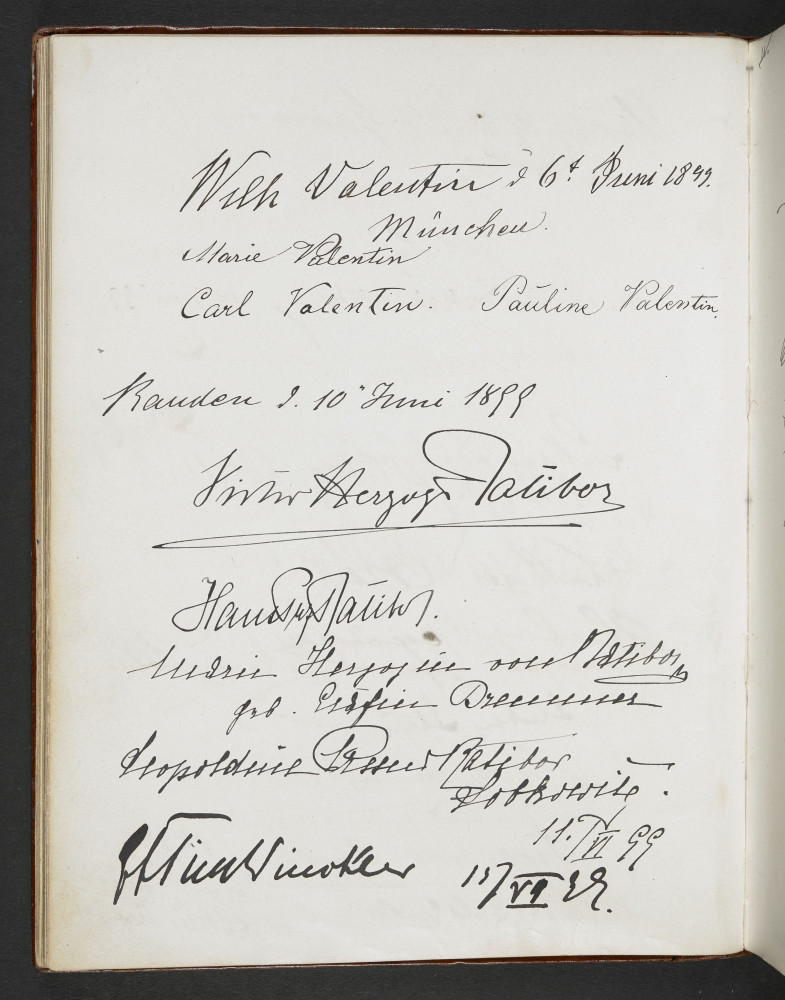 Wilh Valentin d 6t Juni 1899.
München.
Marie Valentin
Carl Valentin. Pauline Valentin.
Rauden d. 10" Juni 1899
Victor Herzog v Ratibor
Hans Prz Ratibor.
Maria Herzogin von Ratibor
geb. Gräfin Breunner
Leopoldine Prssin Ratibor
Lobkowitz.
11./VI 99
Winckler /VI 99.